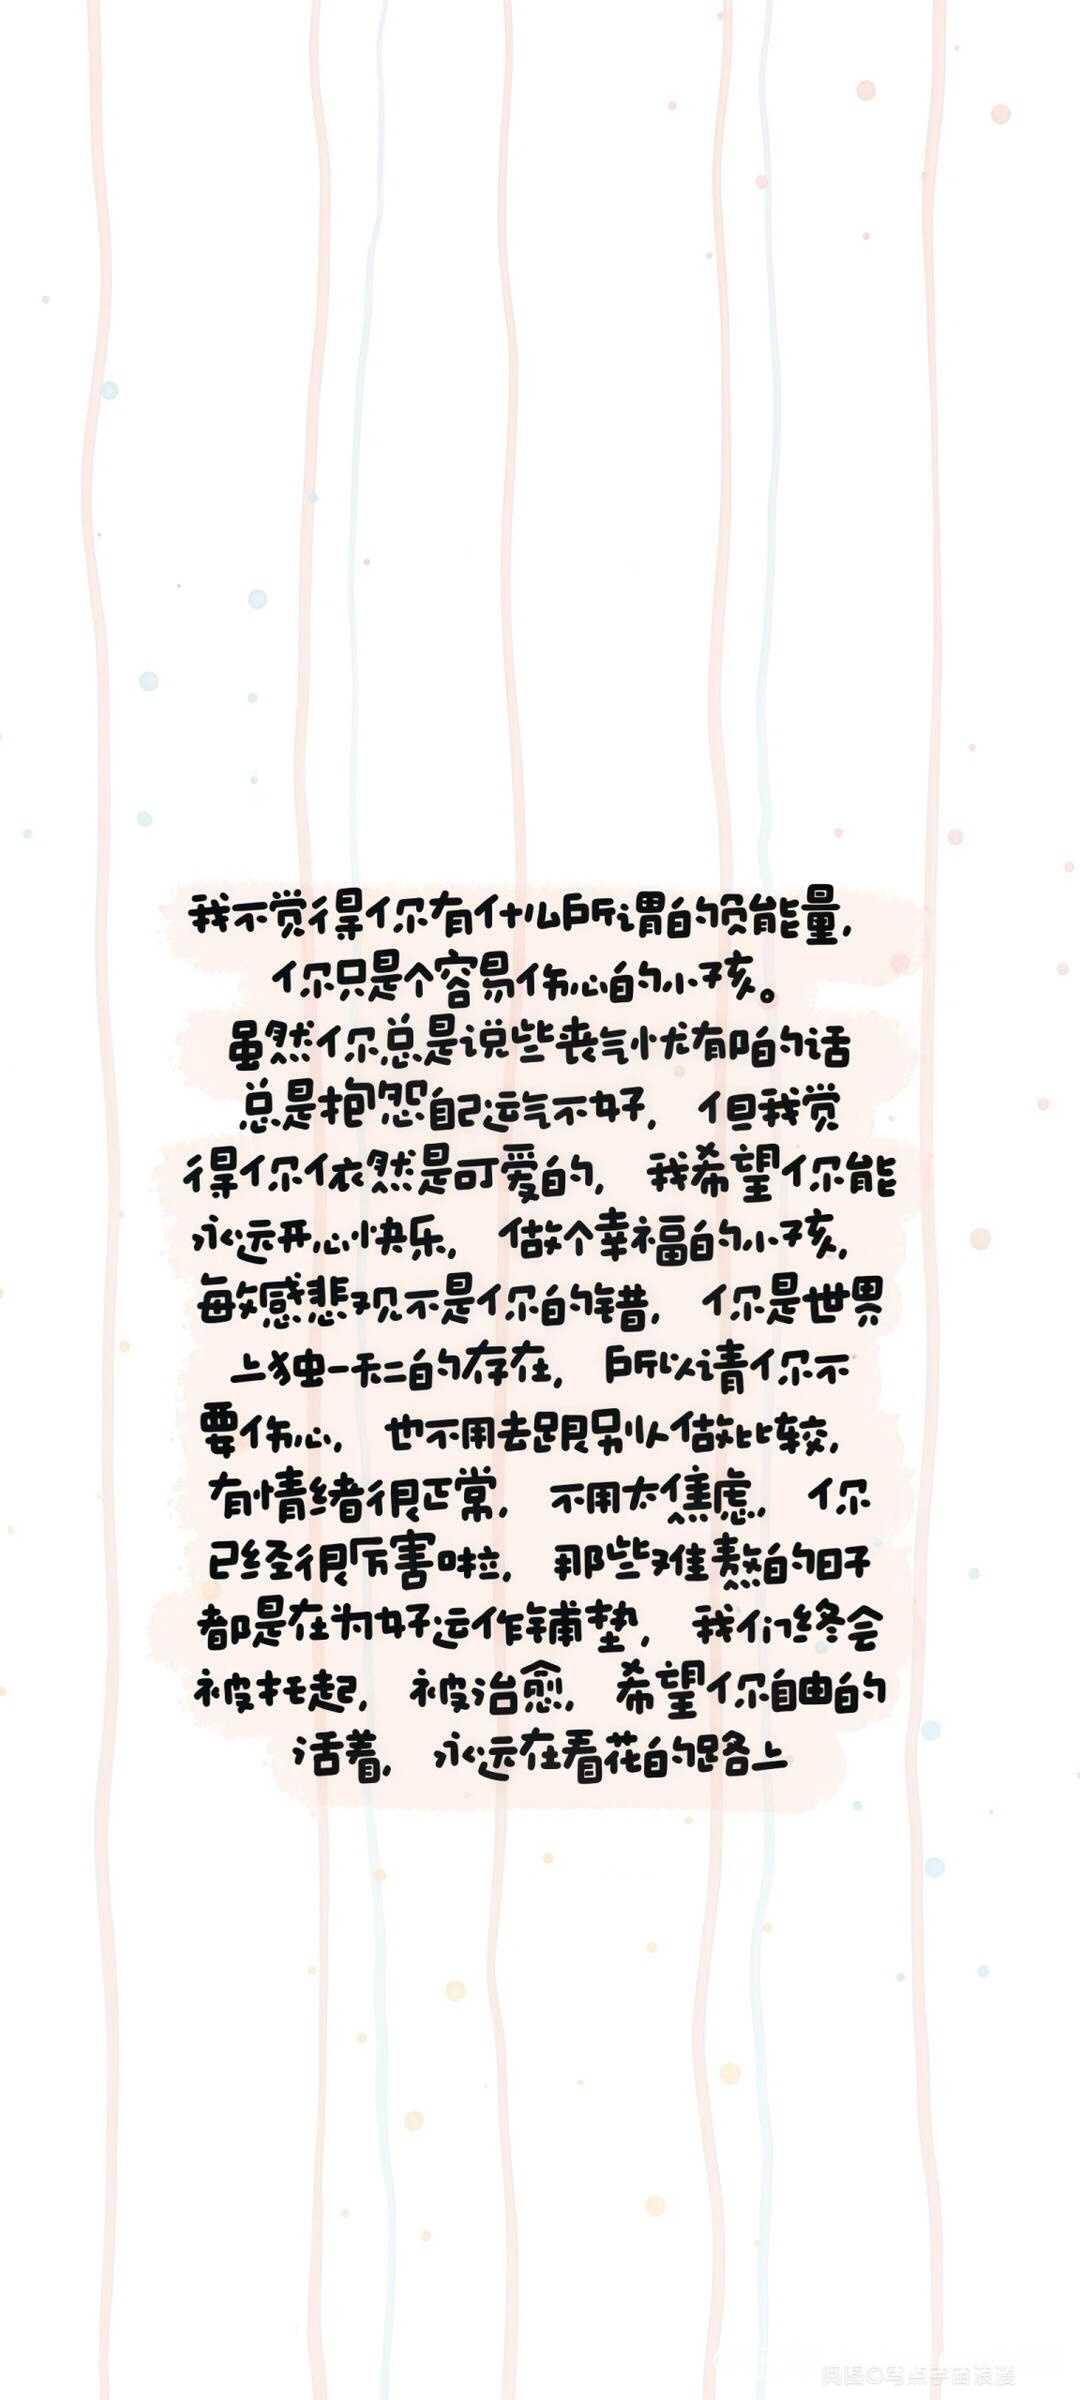 我不觉得你有什么所谓的负能量，
你只是个容易伤心的小孩。
虽然你总是说些丧气忧郁的话
总是抱怨自己运气不好， 但我觉
得你依然是可爱的， 我希望你能
永远开心快乐， 做个幸福的小孩，
敏感悲观不是你的错， 你是世界
上独一无二的存在， 所以请你不
要伤心， 也不用去跟别人做比较，
有情绪很正常， 不用太焦虑， 你
已经很厉害啦， 那些难熬的日子
都是在为好运作铺垫， 我们终会
被托起， 被治愈， 希望你自由的
活着， 永远在看花的路上